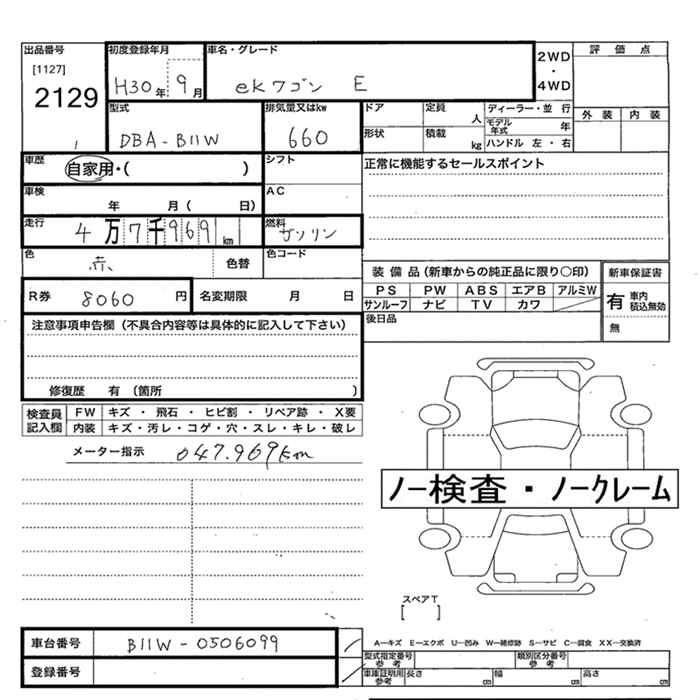 出品番号 初度登録年月 車名・グレード 2WD・4WD 評価点
[1127] 2129 H30年 9月 ekワゴン E
型式 排気量又はkw ドア 定員 人 ディーラー・並行 外装 内装
DBA-B11W 660 形状 積載 kg モデル年式 年 ハンドル 左・右
車歴 自家用・( ) シフト 正常に機能するセールスポイント
車検 年 月( 日) AC
走行 4万7千969km 燃料 ガソリン
色 赤 色替 色コード
装備品(新車からの純正品に限り○印) 新車保証書
R券 8060円 名変期限 月 日 PS PW ABS エアB アルミW 有 車内積込無効
サンルーフ ナビ TV カワ
注意事項申告欄(不具合内容等は具体的に記入して下さい) 後日品 無
修復歴 有(箇所 )
検査員記入欄 FW キズ・飛石・ヒビ割・リペア跡・X要
内装 キズ・汚レ・コゲ・穴・スレ・キレ・破レ
メーター指示 047.969km
ノー検査・ノークレーム
スペアT
[ ]
車台番号 B11W-0506099
A―キズ E―エクボ U―凹み W―補修跡 S―サビ C―腐食 XX―交換済
型式指定番号 参考 類別区分番号 参考
登録番号 車庫証明用参考 長さ cm 幅 cm 高さ cm